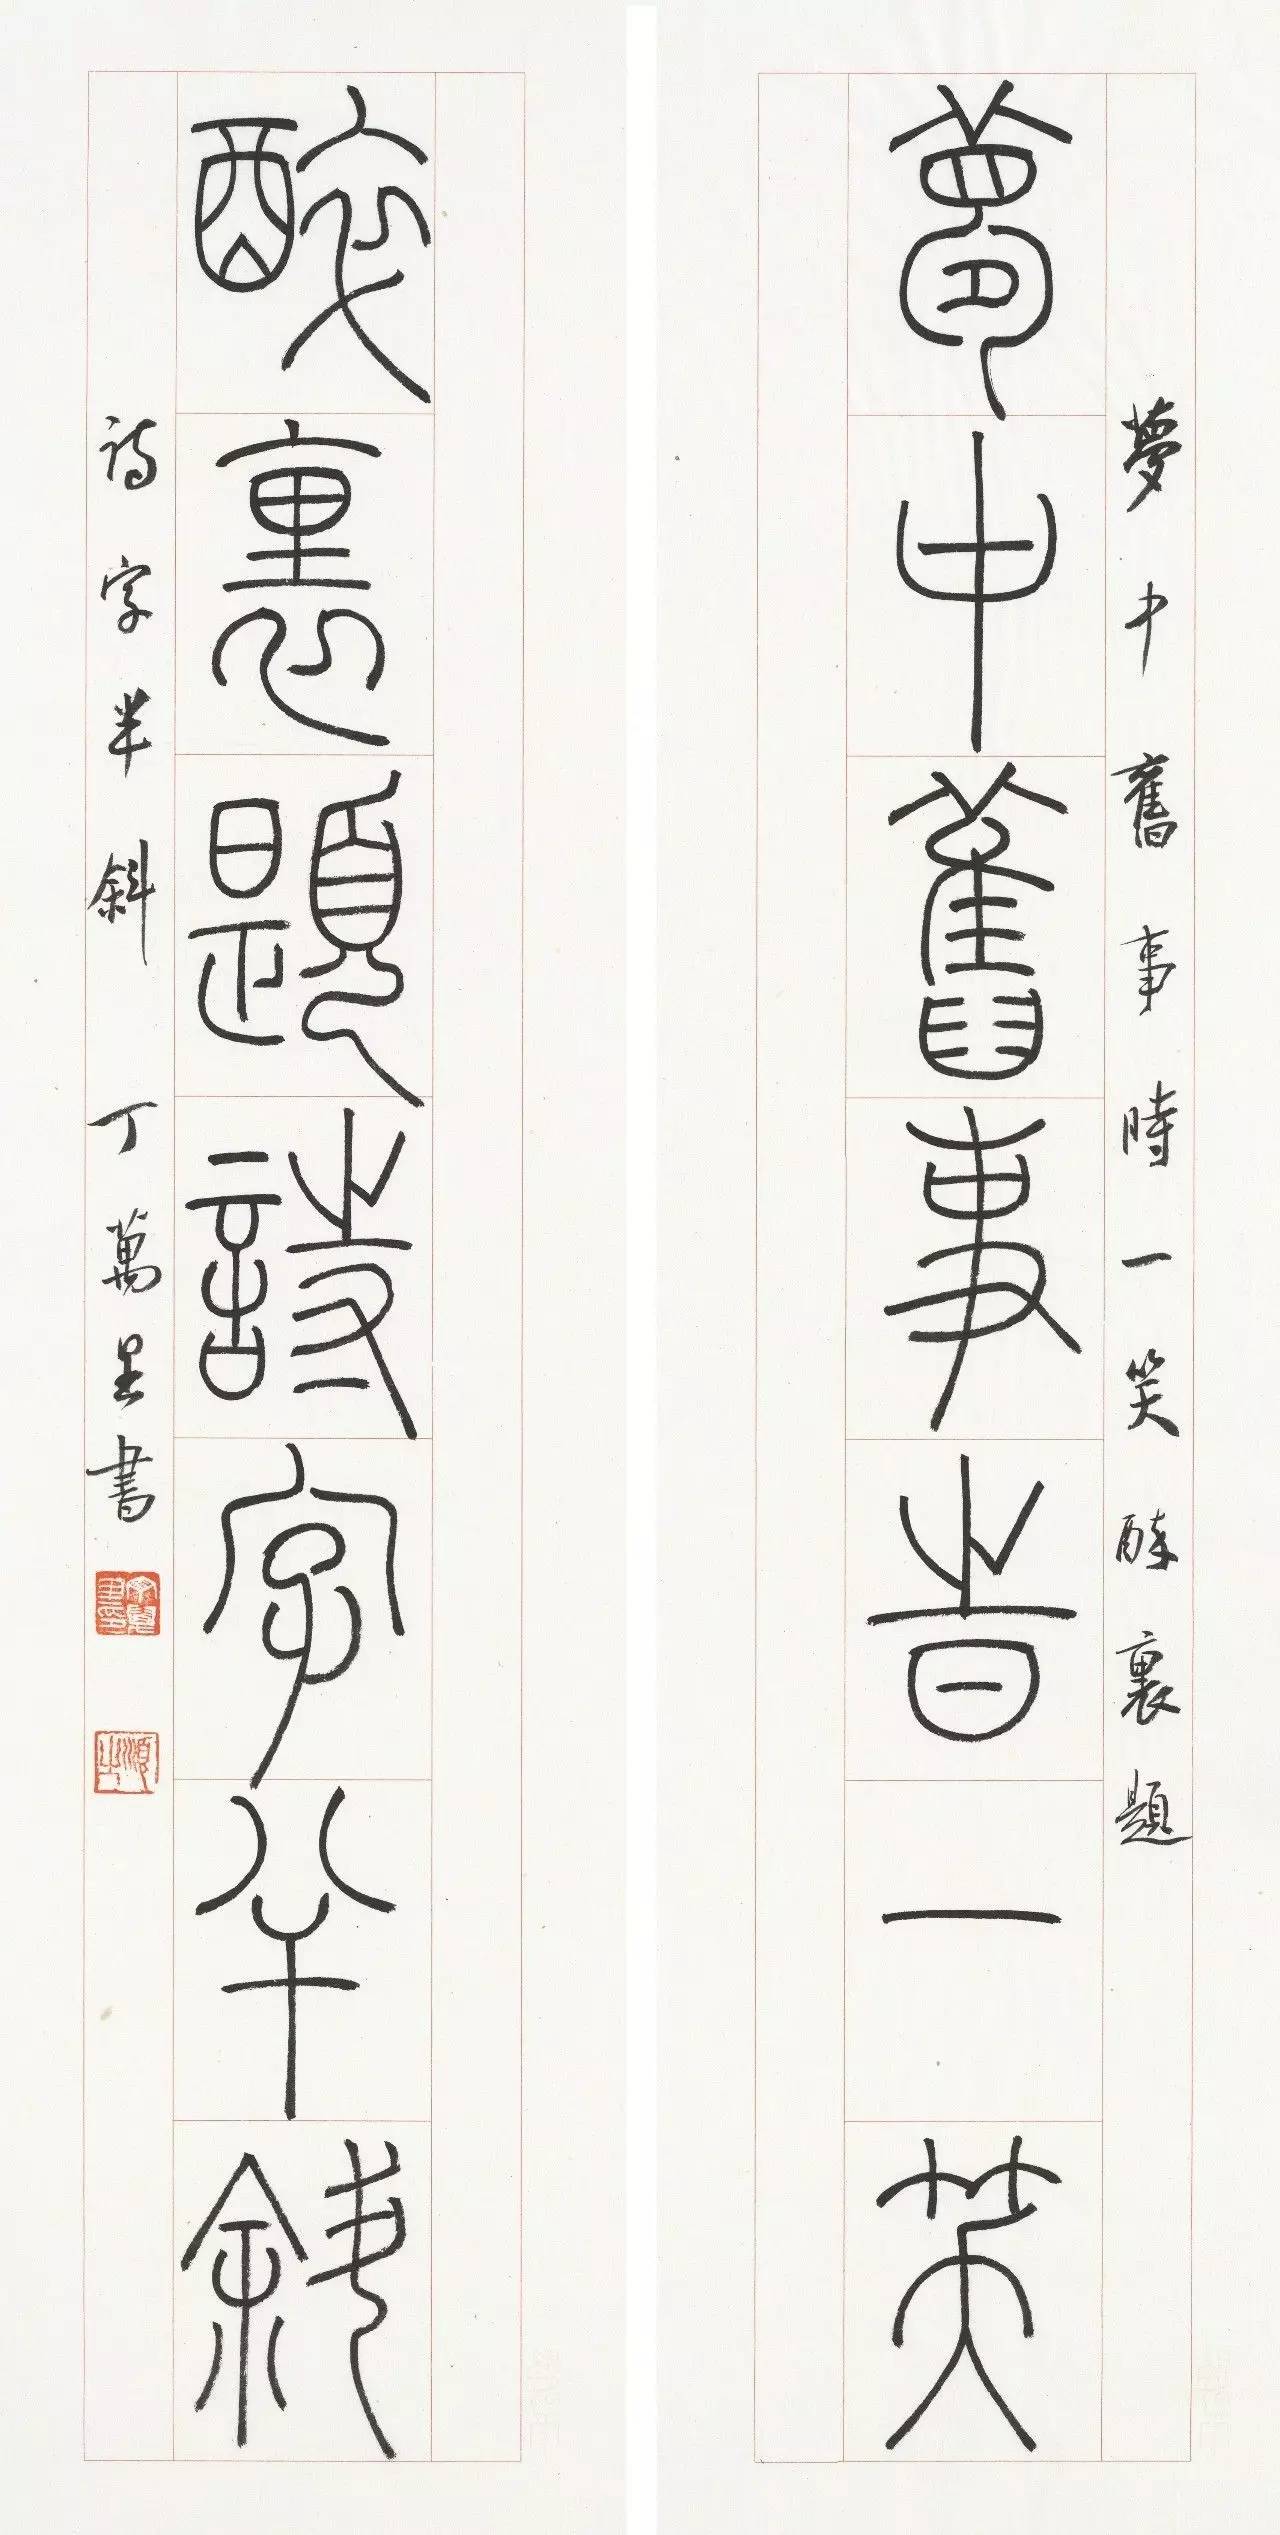 夢中舊事時一笑醉裏題
夢中舊事時一笑
醉裏題詩字半斜
詩字半斜 丁萬里書